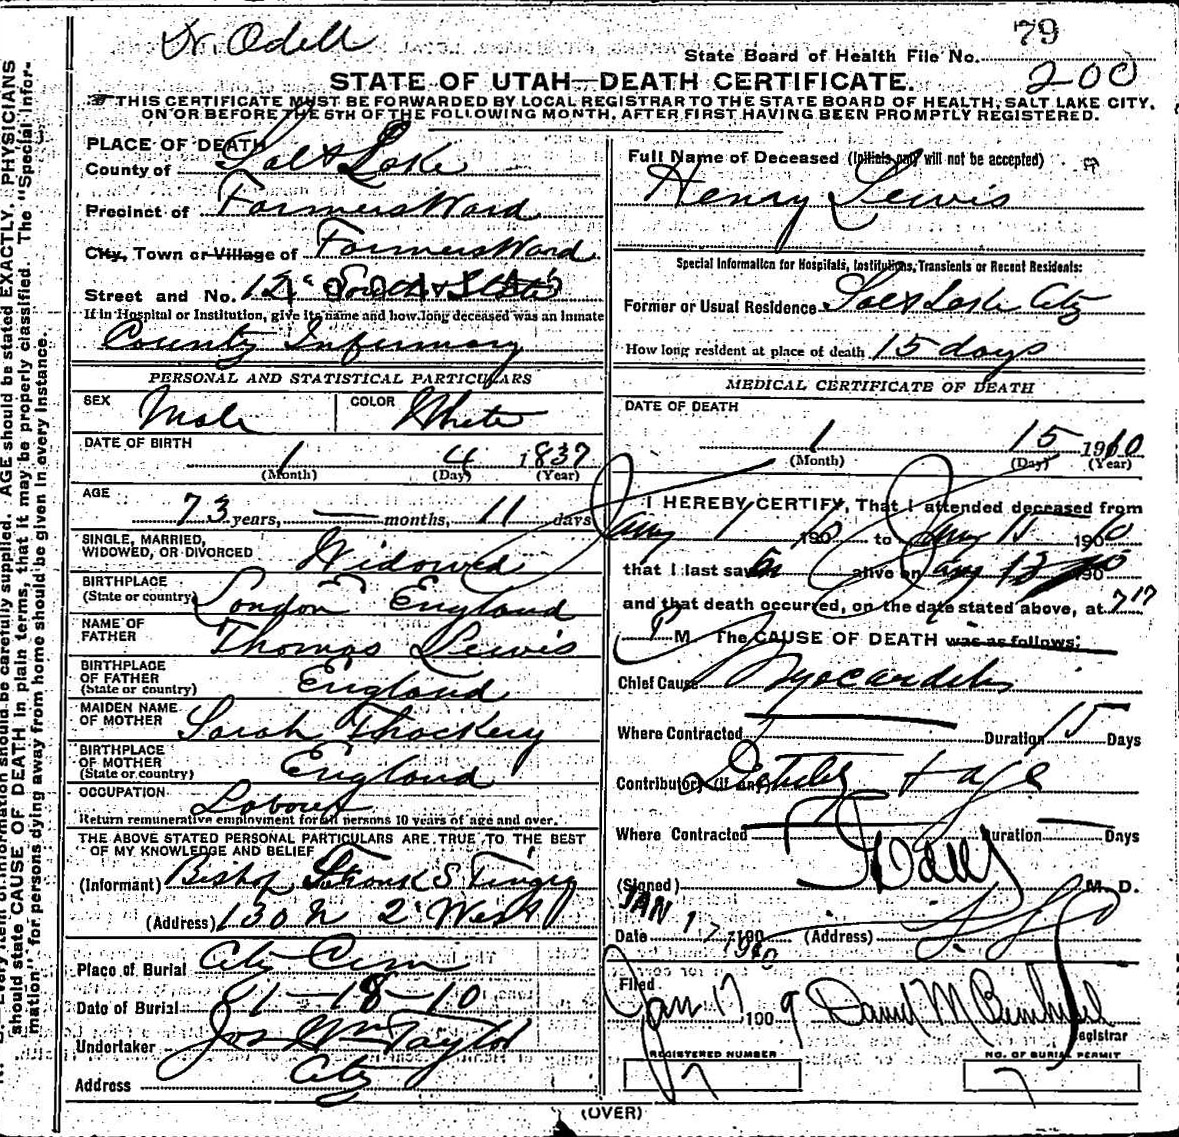 Dr. Odell
79
State Board of Health File No.
200
STATE OF UTAH—DEATH CERTIFICATE.
THIS CERTIFICATE MUST BE FORWARDED BY LOCAL REGISTRAR TO THE STATE BOARD OF HEALTH, SALT LAKE CITY,
ON OR BEFORE THE 5TH OF THE FOLLOWING MONTH, AFTER FIRST HAVING BEEN PROMPTLY REGISTERED.
PLACE OF DEATH
County of Salt Lake
Precinct of Farmers Ward
City, Town or Village of Farmers Ward
Street and No. 12" South & State
If in Hospital or Institution, give its name and how long deceased was an inmate
County Infirmary
PERSONAL AND STATISTICAL PARTICULARS
SEX Male COLOR White
DATE OF BIRTH
1 4 1837
(Month) (Day) (Year)
AGE
73 years, — months, 11 days
SINGLE, MARRIED,
WIDOWED, OR DIVORCED Widowed
BIRTHPLACE
(State or country) London England
NAME OF
FATHER Thomas Lewis
BIRTHPLACE
OF FATHER
(State or country) England
MAIDEN NAME
OF MOTHER Sarah Thackery
BIRTHPLACE
OF MOTHER
(State or country) England
OCCUPATION
Laborer
Return remunerative employment for all persons 10 years of age and over.
THE ABOVE STATED PERSONAL PARTICULARS ARE TRUE TO THE BEST
OF MY KNOWLEDGE AND BELIEF
(Informant) Bishop Frank S Tingey
(Address) 130 N 2" West
Place of Burial City Cem
Date of Burial 1-18-10
Undertaker Jos Wm Taylor
Address City
Full Name of Deceased (Initials only will not be accepted)
Henry Lewis
Special Information for Hospitals, Institutions, Transients or Recent Residents:
Former or Usual Residence Salt Lake City
How long resident at place of death 15 days
MEDICAL CERTIFICATE OF DEATH
DATE OF DEATH
1 15 1910
(Month) (Day) (Year)
I HEREBY CERTIFY, That I attended deceased from
Jany 1 190 10 to Jany 15 190 10
that I last saw alive on Jany 13 190 10
and that death occurred, on the date stated above, at 7 17
P M. The CAUSE OF DEATH was as follows:
Chief Cause Myocarditis
Where Contracted — Duration 15 Days
Contributory (if any) & age
Where Contracted — Duration — Days
(Signed) Odell M. D.
Date JAN 17 1910 190 (Address)
Filed
Jan 17 190 David M
Registrar
REGISTERED NUMBER
7
NO. OF BURIAL PERMIT
7
(OVER)
Every item of information should be carefully supplied. AGE should be stated EXACTLY. PHYSICIANS
should state CAUSE OF DEATH in plain terms, that it may be properly classified. The "Special Infor-
mation" for persons dying away from home should be given in every instance.